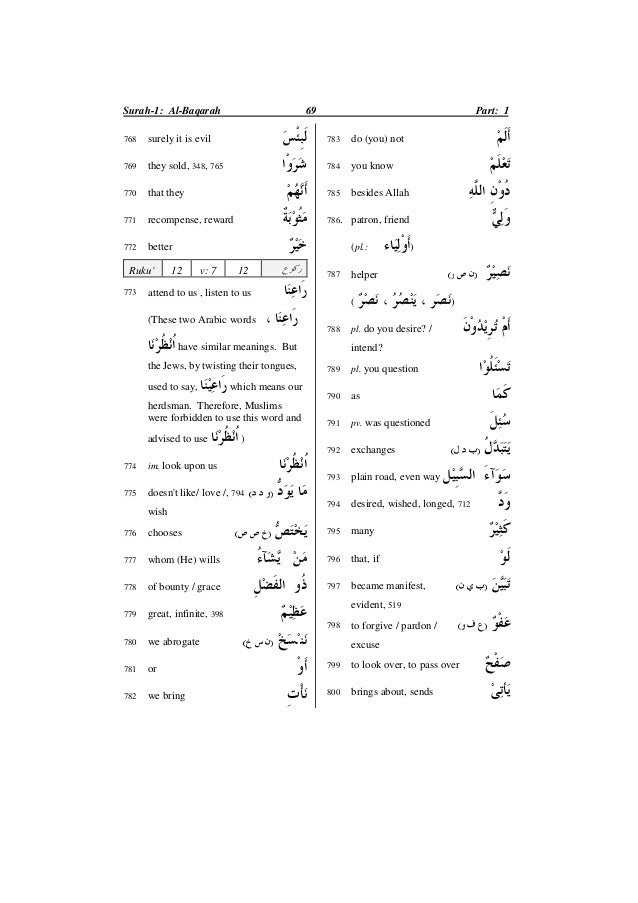 Surah-1: Al-Baqarah 69 Part: 1
768 surely it is evil لَبِئْسَ
769 they sold, 348, 765 شَرَوْا
770 that they أَنَّهُمْ
771 recompense, reward مَثُوْبَةٌ
772 better خَيْرٌ
Ruku' 12 v: 7 12 ركوع
773 attend to us , listen to us رَاعِنَا
(These two Arabic words رَاعِنَا ،
انْظُرْنَا have similar meanings. But
the Jews, by twisting their tongues,
used to say, رَاعِيْنَا which means our
herdsman. Therefore, Muslims
were forbidden to use this word and
advised to use انْظُرْنَا )
774 im. look upon us انْظُرْنَا
775 doesn't like/ love /, 794 (و د د) مَا يَوَدُّ
wish
776 chooses (خ ص ص) يَخْتَصُّ
777 whom (He) wills مَنْ يَّشَآءُ
778 of bounty / grace ذُو الْفَضْلِ
779 great, infinite, 398 عَظِيْمٌ
780 we abrogate (ن س خ) نَنْسَخْ
781 or أَوْ
782 we bring نَأْتِ
783 do (you) not أَلَمْ
784 you know تَعْلَمْ
785 besides Allah دُوْنِ اللَّهِ
786. patron, friend وَلِيٍّ
(pl.: أَوْلِيَاء)
787 helper (ن ص ر) نَصِيْرٌ
( نَصَرَ ، يَنْصُرُ ، نَصْرٌ )
788 pl. do you desire? / أَمْ تُرِيْدُوْنَ
intend?
789 pl. you question تَسْئَلُوْا
790 as كَمَا
791 pv. was questioned سُئِلَ
792 exchanges (ب د ل) يَتَبَدَّلُ
793 plain road, even way سَوَآءَ السَّبِيْلِ
794 desired, wished, longed, 712 وَدَّ
795 many كَثِيْرٌ
796 that, if لَوْ
797 became manifest, (ب ي ن) تَبَيَّنَ
evident, 519
798 to forgive / pardon / (ع ف و) عَفْوٌ
excuse
799 to look over, to pass over صَفْحٌ
800 brings about, sends يَأْتِيْ